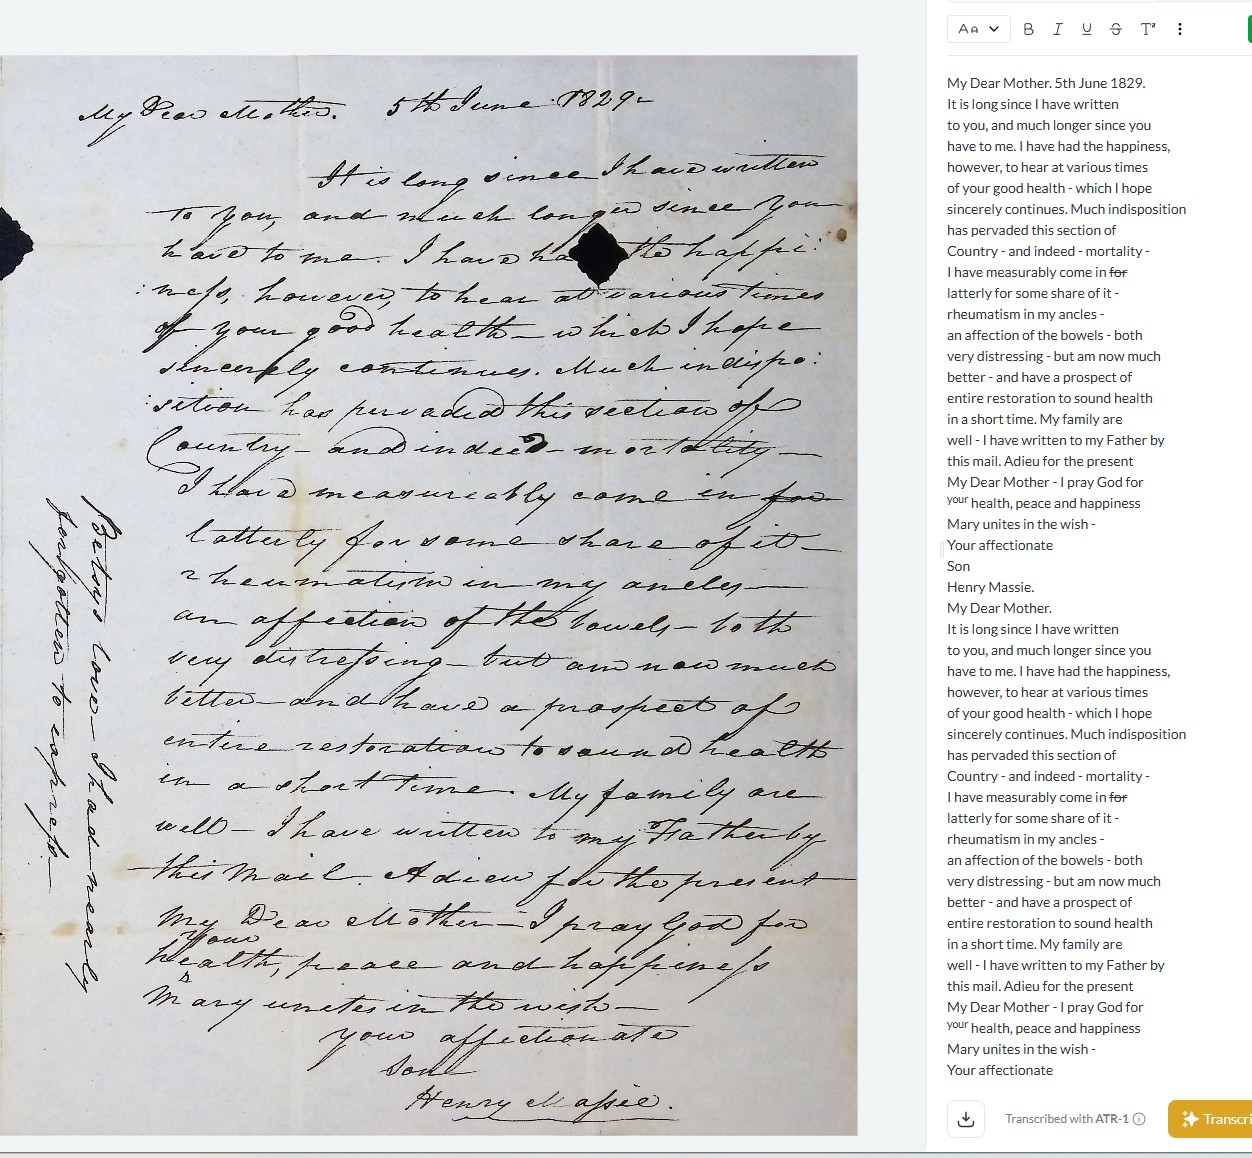 My Dear Mother. 5th June 1829.
It is long since I have written
to you, and much longer since you
have to me. I have ha the happi:
:ness, however, to hear at various times
of your good health - which I hope
sincerely continues. Much indispo:
:sition has pervaded this section of
Country - and indeed - mortality -
I have measureably come in for
latterly for some share of it -
rheumatism in my ancles -
an affection of the bowels - both
very distressing - but am now much
better - and have a prospect of
entire restoration to sound health
in a short time. My family are
well - I have written to my Father by
this Mail. Adieu for the present
My Dear Mother - I pray God for
your
health, peace and happiness
Mary unites in the wish -
your affectionate
Son
Henry Massie.
Betsys love - I had nearly
forgotten to express -
Aa B I U S T²
My Dear Mother. 5th June 1829.
It is long since I have written
to you, and much longer since you
have to me. I have had the happiness,
however, to hear at various times
of your good health - which I hope
sincerely continues. Much indisposition
has pervaded this section of
Country - and indeed - mortality -
I have measurably come in for
latterly for some share of it -
rheumatism in my ancles -
an affection of the bowels - both
very distressing - but am now much
better - and have a prospect of
entire restoration to sound health
in a short time. My family are
well - I have written to my Father by
this mail. Adieu for the present
My Dear Mother - I pray God for
your health, peace and happiness
Mary unites in the wish -
Your affectionate
Son
Henry Massie.
My Dear Mother.
It is long since I have written
to you, and much longer since you
have to me. I have had the happiness,
however, to hear at various times
of your good health - which I hope
sincerely continues. Much indisposition
has pervaded this section of
Country - and indeed - mortality -
I have measurably come in for
latterly for some share of it -
rheumatism in my ancles -
an affection of the bowels - both
very distressing - but am now much
better - and have a prospect of
entire restoration to sound health
in a short time. My family are
well - I have written to my Father by
this mail. Adieu for the present
My Dear Mother - I pray God for
your health, peace and happiness
Mary unites in the wish -
Your affectionate
Transcribed with ATR-1
Transcri